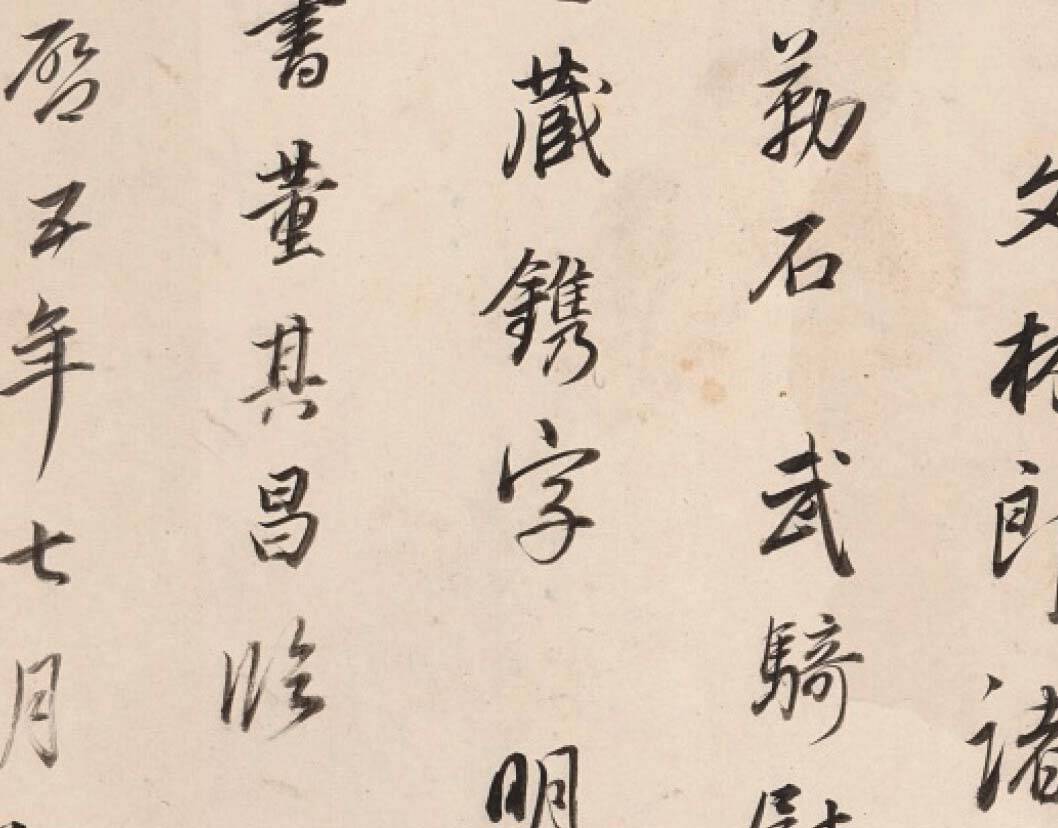 文林郎諸
勒石武騎尉
藏鐫字 明
書董其昌臨
啓五年七月